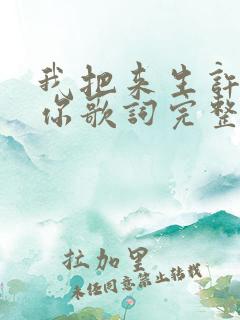 我把来生許
你歌詞完整
拉加里
未经同意禁止转载